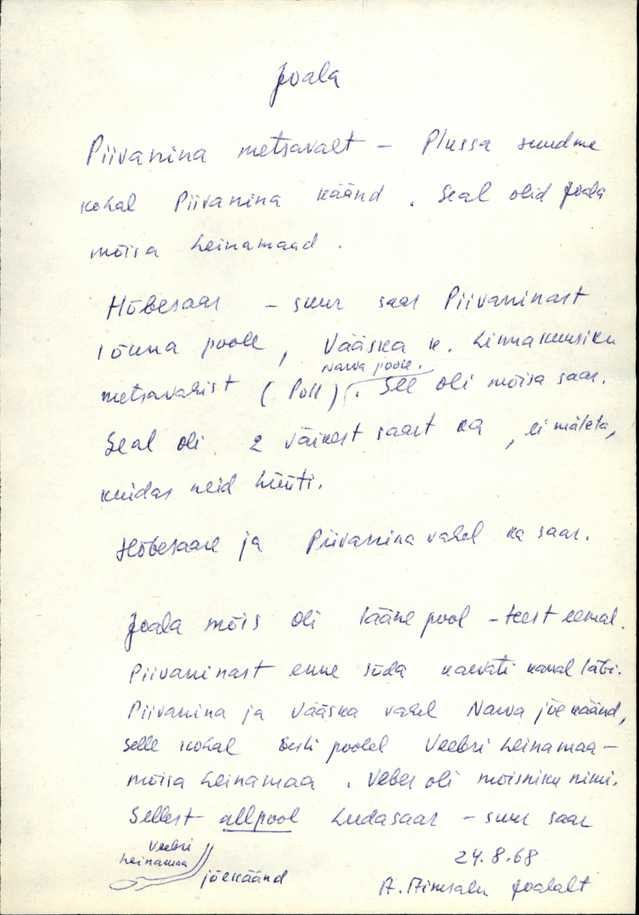 Joala
Piivanina metsavaht – Plussa suudme
kohal Piivanina käänd. Seal olid Joala
mõisa heinamaad.
Hõbesaar – suur saar Piivaninast
lõuna poole, Vääska k. Linnakuusiku
Narva poole.
metsavahist (Poll). See oli mõisa saar.
Seal oli 2 väikest saart ka, ei mäleta,
kuidas neid hüüti.
Hõbesaare ja Piivanina vahel ka saar.
Joala mõis oli lääne pool – teest eemal.
Piivaninast enne sõda kaevati kanal läbi.
Piivanina ja Vääska vahel Narva jõe käänd,
selle kohal Eesti poolel Veebri heinamaa –
mõisa heinamaa. Veber oli mõisniku nimi.
Sellest allpool Ludasaar – suur saar
Veebri
heinamaa
jõekäänd
24.8.68
Joalalt